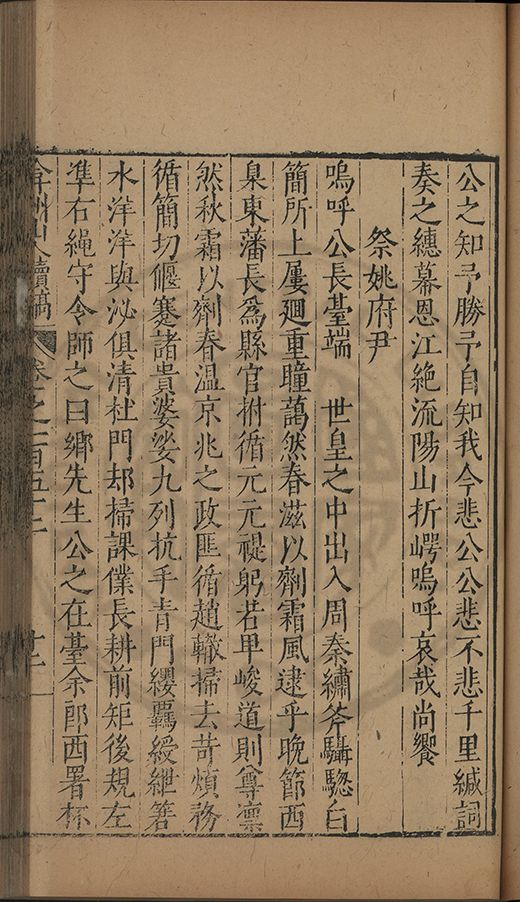 公之知予勝予自知我今悲公公悲不悲千里緘詞
奏之繐幕恩江絶流陽山折崿嗚呼哀哉尚饗
祭姚府尹
嗚呼公長臺端　世皇之中出入周秦繡斧驄騘白
簡所上屢廻重瞳藹然春滋以劑霜風逮乎晩節西
臬東藩長爲縣官拊循元元禔躬若甲峻道則尊凛
然秋霜以劑春温京兆之政匪循趙轍掃去苛煩務
循簡切偃蹇諸貴婆娑九列抗手青門纓羈綬紲箬
水洋洋與泌俱清杜門却掃課僕長耕前矩後規左
凖右繩守令師之曰鄉先生公之在臺余郎西署杯
弇州山人續稿　卷之一百五十二　廿二